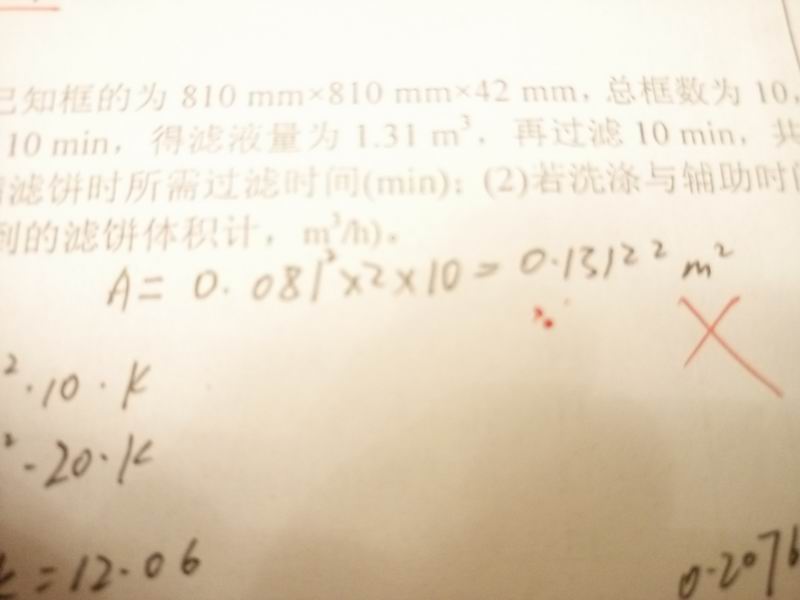 已知框的为 810 mm×810 mm×42 mm，总框数为 10，
10 min，得滤液量为 1.31 m³，再过滤 10 min，共
滤饼时所需过滤时间(min)；(2)若洗涤与辅助时间
到的滤饼体积计，m³/h)。
A = 0.081²×2×10 = 0.13122 m²
²·10·K
²·20·K
K=12.06
0.2076